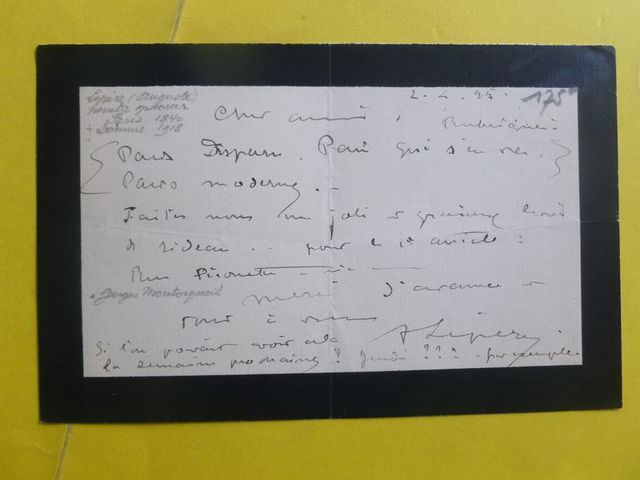 Lepère (Auguste)
peintre graveur
Paris 1849
Domme 1918
2. 4. 95.
175
Cher ami,
Paris Disparu. Paris qui s'en va,
Paris moderne. -
Faites nous un joli et
rideau .. pour le 1er article :
Rue
à Georges Montorgueil
merci d'avance et
tout à vous
A Lepère
Si l'on pouvait avoir cela
la semaine prochaine ? Jeudi ??? par exemple.